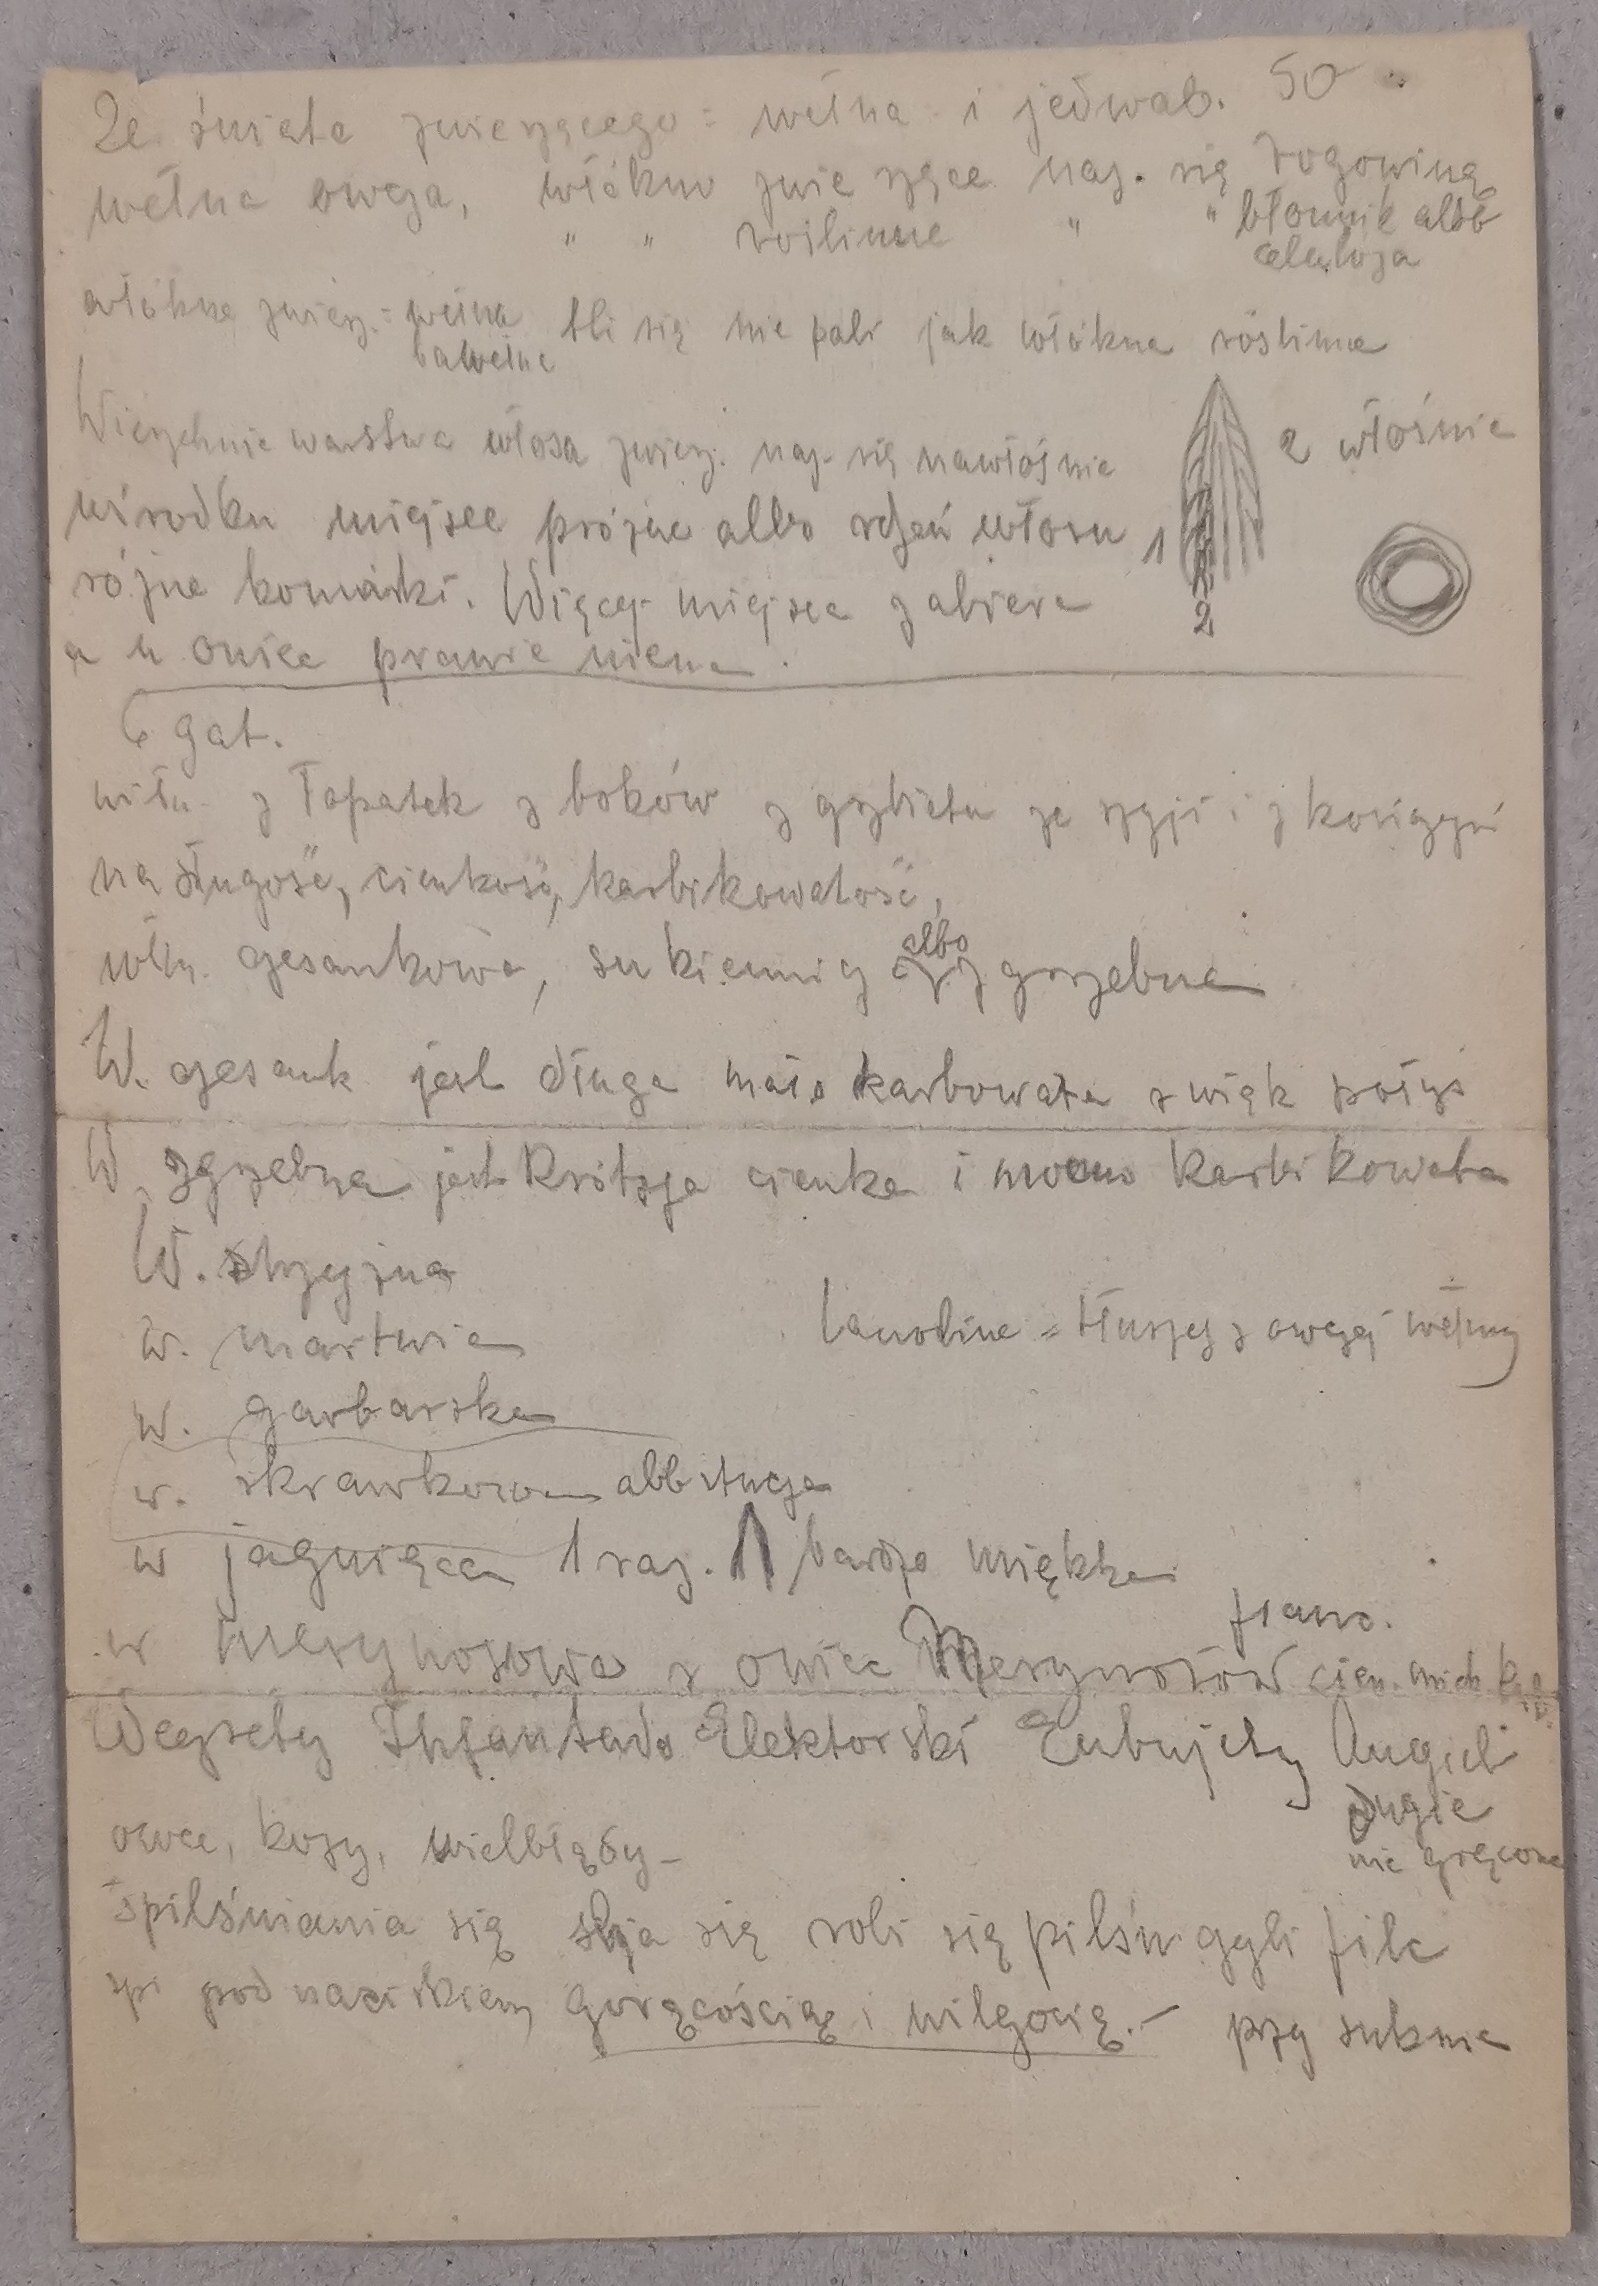 Ze świata zwierzęcego: wełna i jedwab. 50
wełna owcza, włókno zwierzęce naz. się rogowiną
" " roślinne " " błonnik albo
celuloza
włókna zwierz.: wełna tli się nie pali jak włókna roślinne
bawełna
Wierzchnia warstwa włosa zwierz. naz. się nawłośnia
2 włośnia
wśrodku miejsce próżne albo rdzeń włosu 1
różne komórki. Więcej miejsca zabiera
2
a u owiec prawie niema.
6 gat.
wełn. z łopatek z boków z grzbietu ze szyji i z kończyn
na długość, cienkość, karbikowatość,
albo
wełn. czesankowa, sukiennicz zgrzebna
W. czesank jest długa mało karbowata z więk połys
W zgrzebna jest krótsza cienka i mocno karbikowata
W. strzyżna
w. martwica
Lanolina = tłuszcz z owczej wełny
w. garbarska
w. skrawkowa alb sztucza
w jagnięca 1 raz. bardzo miękka
franc.
w merynosowa z owiec Merynosów cien. mięk
Wegrety Infantado Elektorski Rambujety Angieli
długie
owce, kozy, wielbłądy -
nie kręcone
spilśniania się zbija się robi się pilśń czyli filc
spi pod naciskiem gorącością i wilgocią. - przy suknie